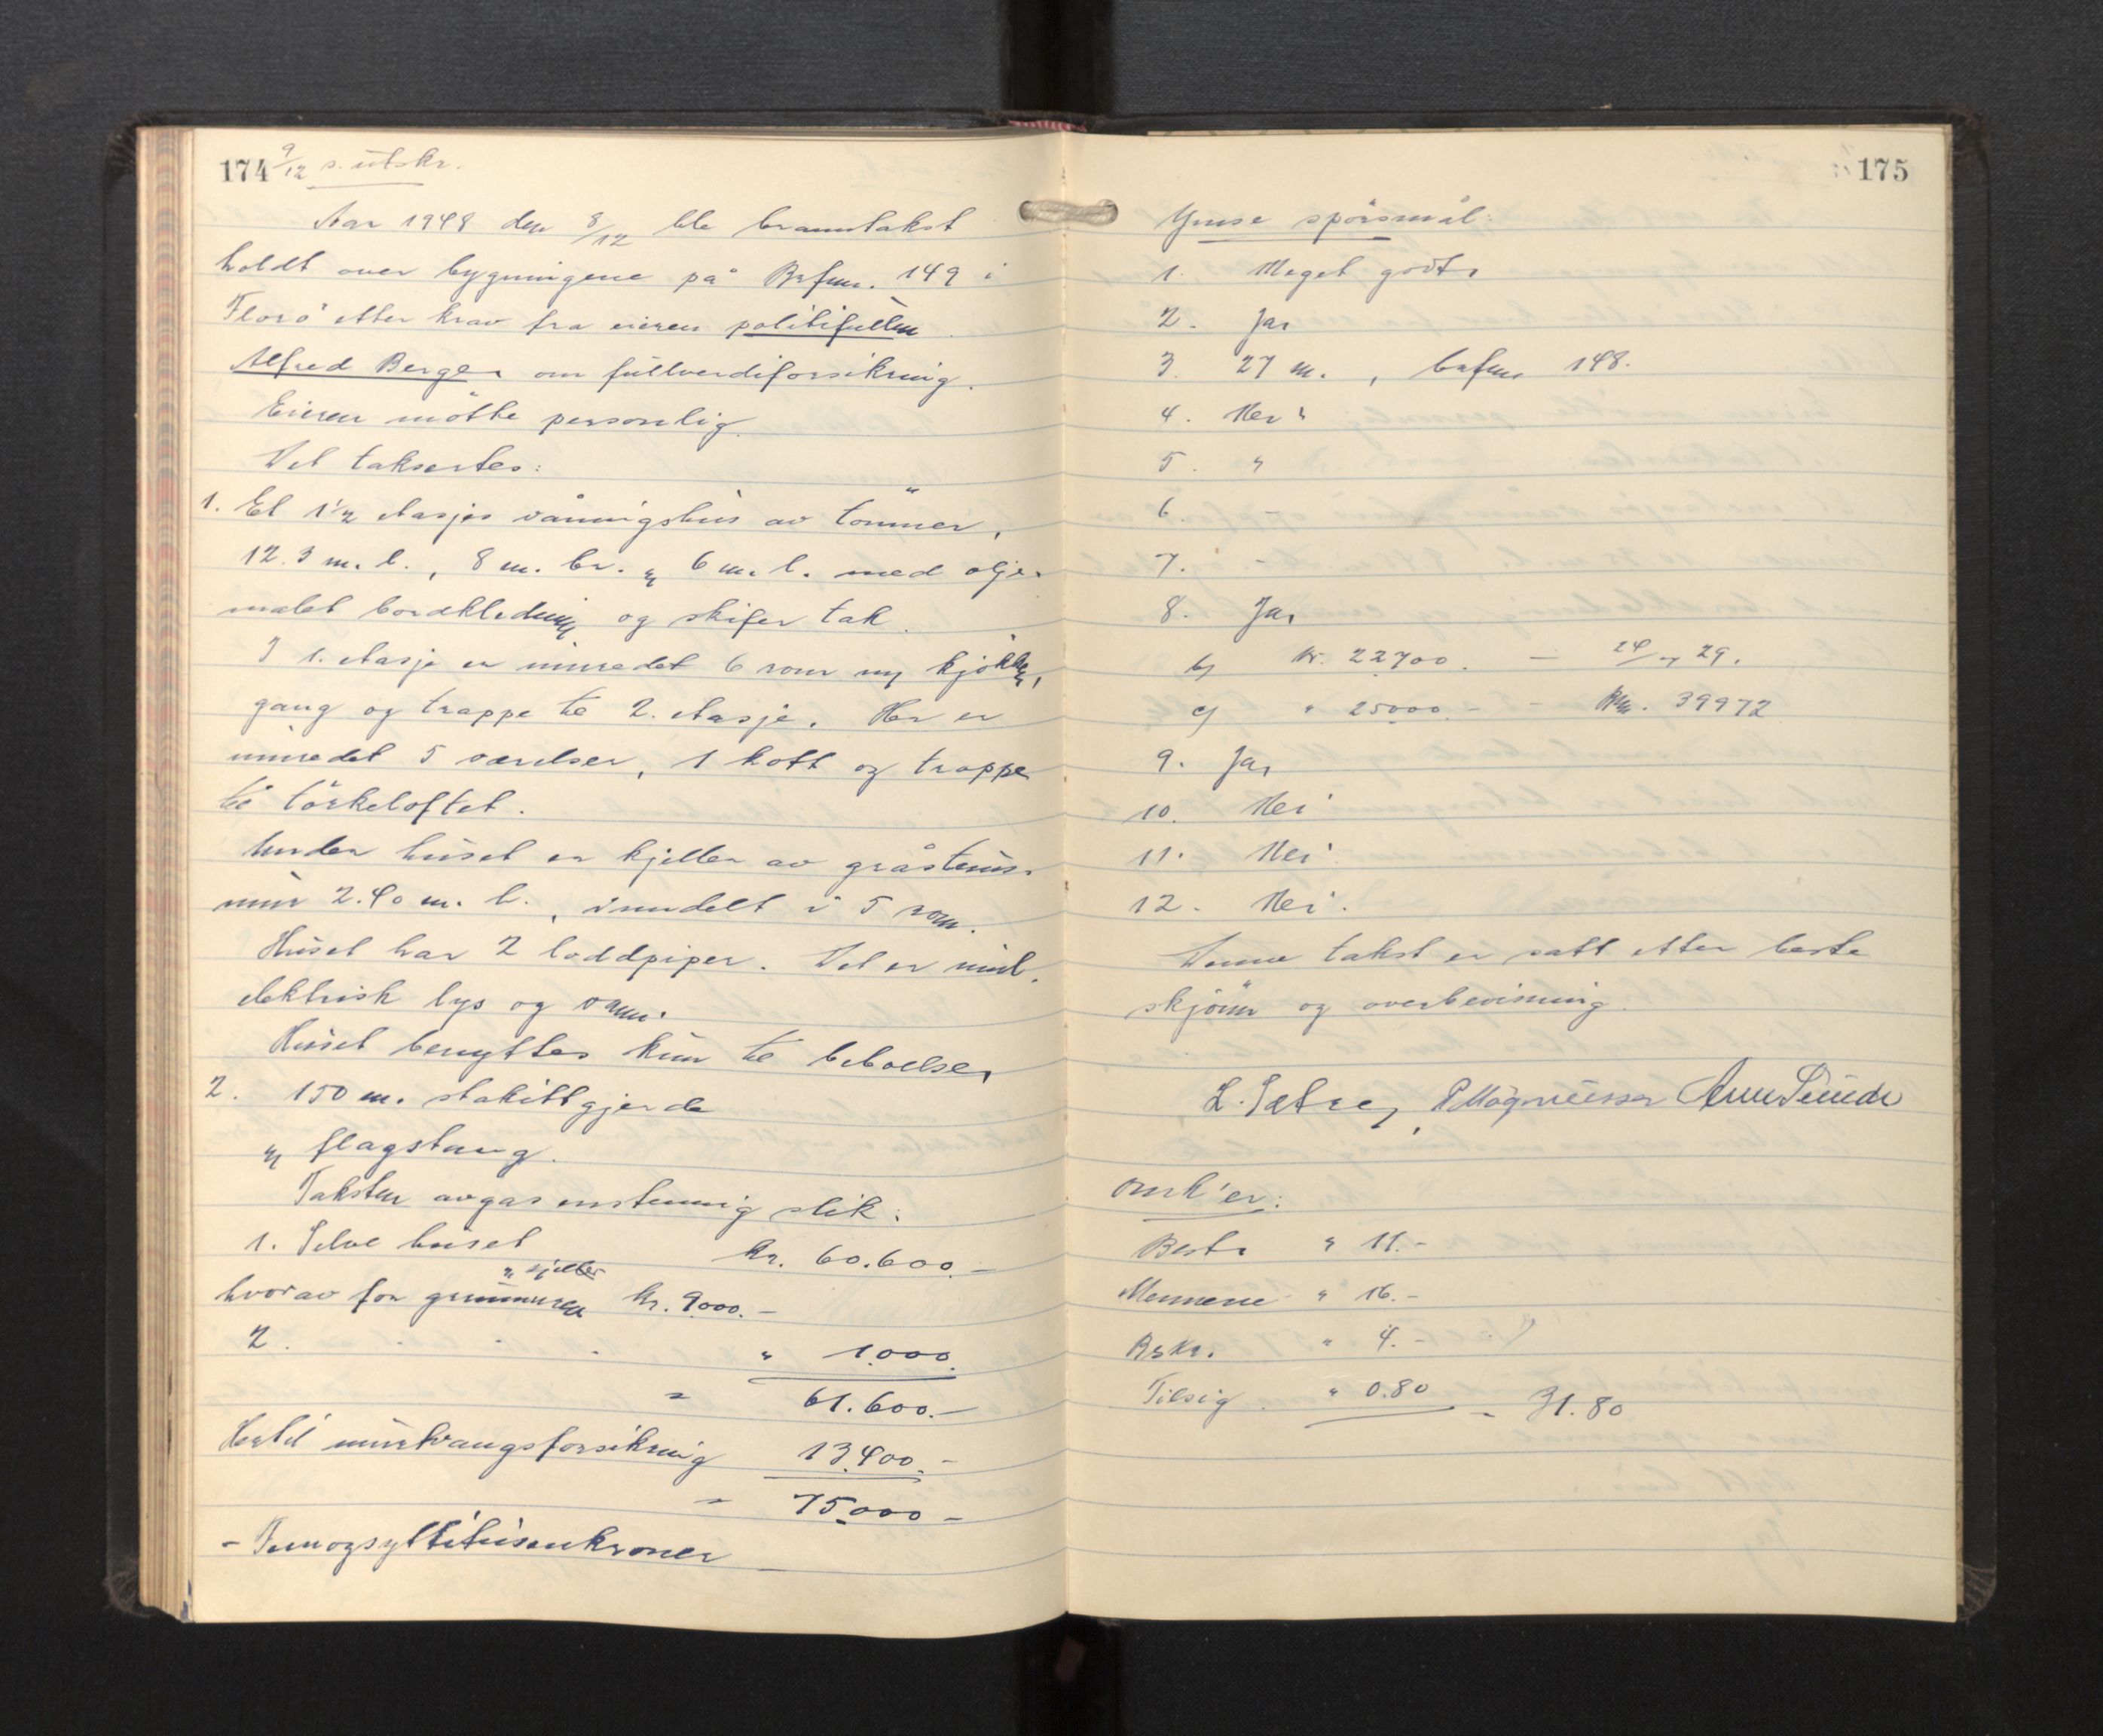 174 9/12 s. utskr.
Aar 1948 den 8/12 ble branntakst
holdt over bygningene på Brfnr. 149 i
Florø etter krav fra eieren politifullm
Alfred Berge, om fullverdiforsikring.
Eieren møtte personlig.
Det taksertes:
1. Et 1 1/2 etasjes våningshus av tømmer,
12.3 m. l., 8 m. br. og 6 m. h. med olje-
malet bordkledning og skifer tak.
I 1. etasje er innredet 6 rom og kjøkken,
gang og trappe til 2. etasje. Her er
innredet 5 værelser, 1 kott og trappe
til tørkeloftet.
Under huset er kjeller av gråsteins-
mur 2.40 m. h., inndelt i 5 rom.
Huset har 2 loddpiper. Det er innl.
elektrisk lys og vann.
Huset benyttes kun til beboelse,
2. 150 m. stakittgjerde
og flagstang.
Taksten avgas enstemmig slik:
1. Selve huset kr. 60.600.-
og kjeller
hvorav for grunnmuren kr. 9000.-
2. " 1.000.
= 61.600.-
Hertil murtvangsforsikring 13.400.-
= 75.000 -
- Femogsyttitusenkroner
175
Ymse spørsmål:
1. Meget godt,
2. Ja,
3. 27 m., brfnr 148.
4. Nei
5. "
6. -
7. -
8. Ja,
b) kr. 22700. - 29.
c) " 25000.- - 39972
9. Ja,
10. Nei
11. Nei.
12. Nei.
Denne takst er satt etter beste
skjønn og overbevisning.
L. Sætre, P Magnussen
Omk'er:
Best. " 11.-
Mennene " 16.-
" 4.-
Tilsig. " 0.80 = 31.80